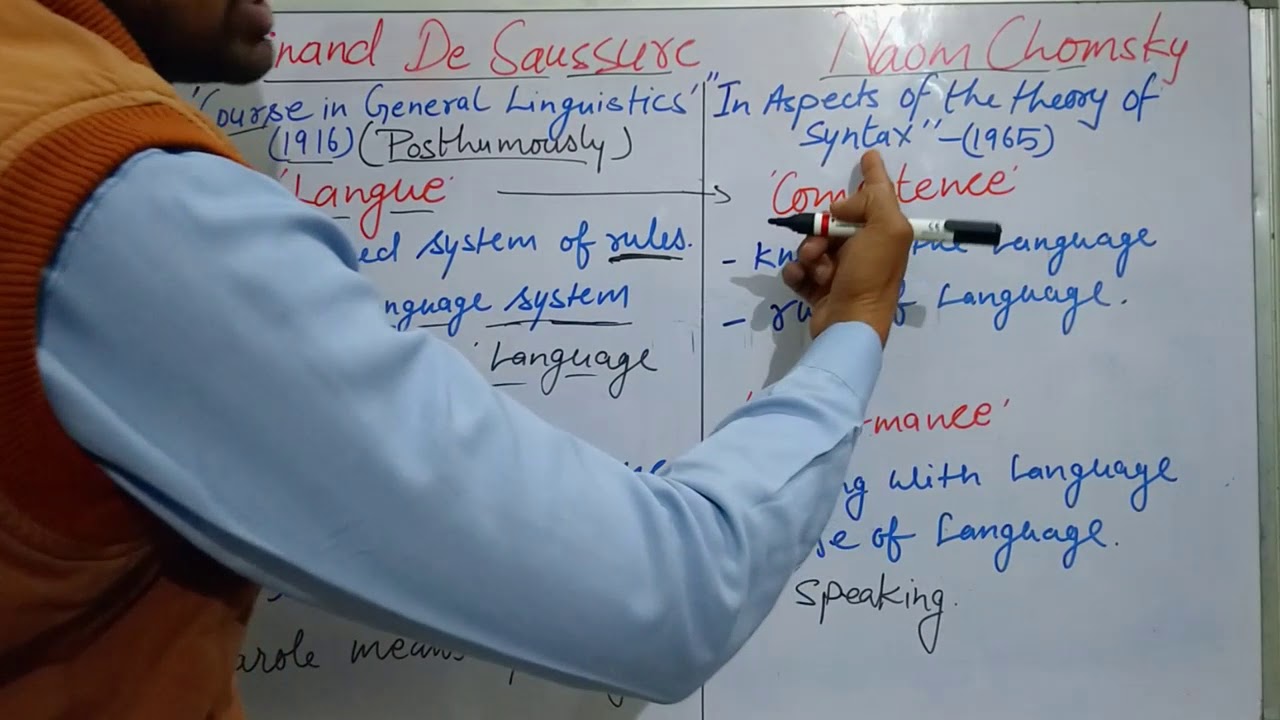 inand De Saussure
'Course in General Linguistics'
(1916) (Posthumously)
'Langue'
ed system of rules.
nguage system
' Language
arole means
Naom Chomsky
"In Aspects of the theory of
Syntax" – (1965)
'Com tence'
- kn the Language
- ru f Language.
' manee'
ng with Language
se of Language.
Speaking.